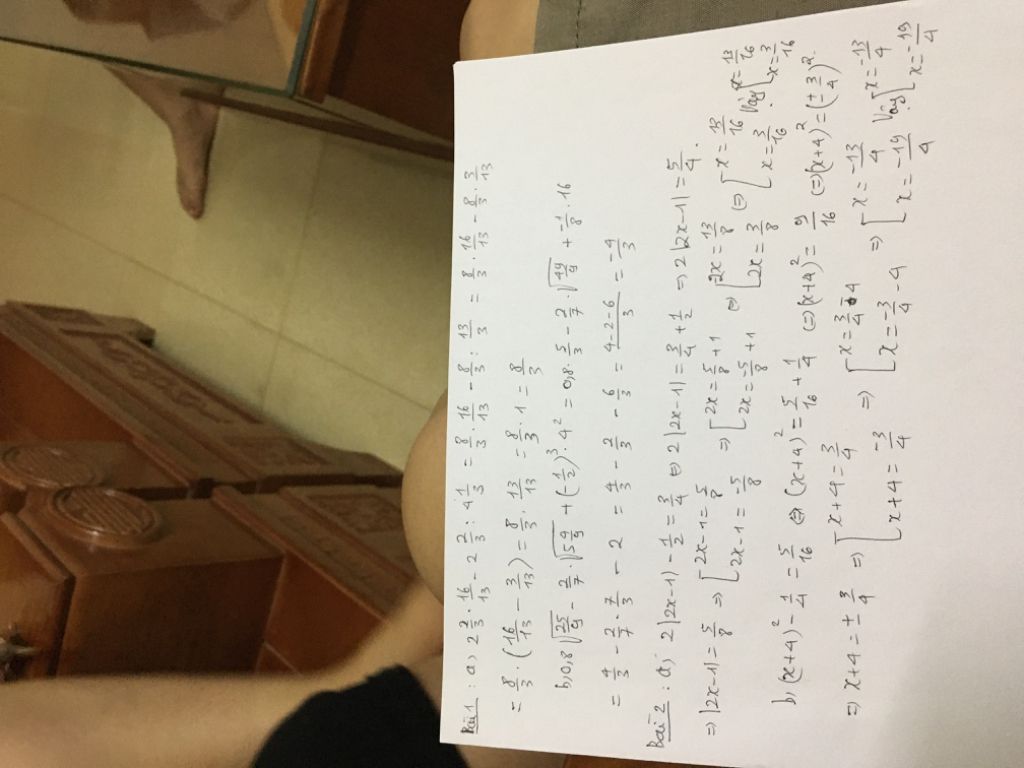 Bài 1 : a, 2 2/3 . 16/13 - 2 2/3 : 4 1/3 = 8/3 . 16/13 - 8/3 : 13/3 = 8/3 . 16/13 - 8/3 . 3/13
= 8/3 . (16/13 - 3/13) = 8/3 . 13/13 = 8/3 . 1 = 8/3
b, 0,8 √(25/9) - 2/7 . √(5 4/9) + (-1/2)³ . 4² = 0,8 . 5/3 - 2/7 . √(49/9) + -1/8 . 16
= 4/3 - 2/7 . 7/3 - 2 = 4/3 - 2/3 - 6/3 = (4-2-6)/3 = -4/3
Bài 2 : a, 2|2x-1| - 1/2 = 3/4 ⇔ 2|2x-1| = 3/4 + 1/2 ⇒ 2|2x-1| = 5/4 .
⇒ |2x-1| = 5/8 ⇒ [ 2x-1 = 5/8 ; 2x-1 = -5/8 ⇒ [ 2x = 5/8 + 1 ; 2x = -5/8 + 1 ⇔ [ 2x = 13/8 ; 2x = 3/8 ⇔ [ x = 13/16 ; x = 3/16 Vậy [ x = 13/16 ; x = 3/16
b, (x+4)² - 1/4 = 5/16 ⇔ (x+4)² = 5/16 + 1/4 ⇔ (x+4)² = 9/16 ⇔ (x+4)² = (± 3/4)².
⇒ x+4 = ± 3/4 ⇒ [ x+4 = 3/4 ; x+4 = -3/4 ⇒ [ x = 3/4 - 4 ; x = -3/4 - 4 ⇒ [ x = -13/4 ; x = -19/4 Vậy [ x = -13/4 ; x = -19/4